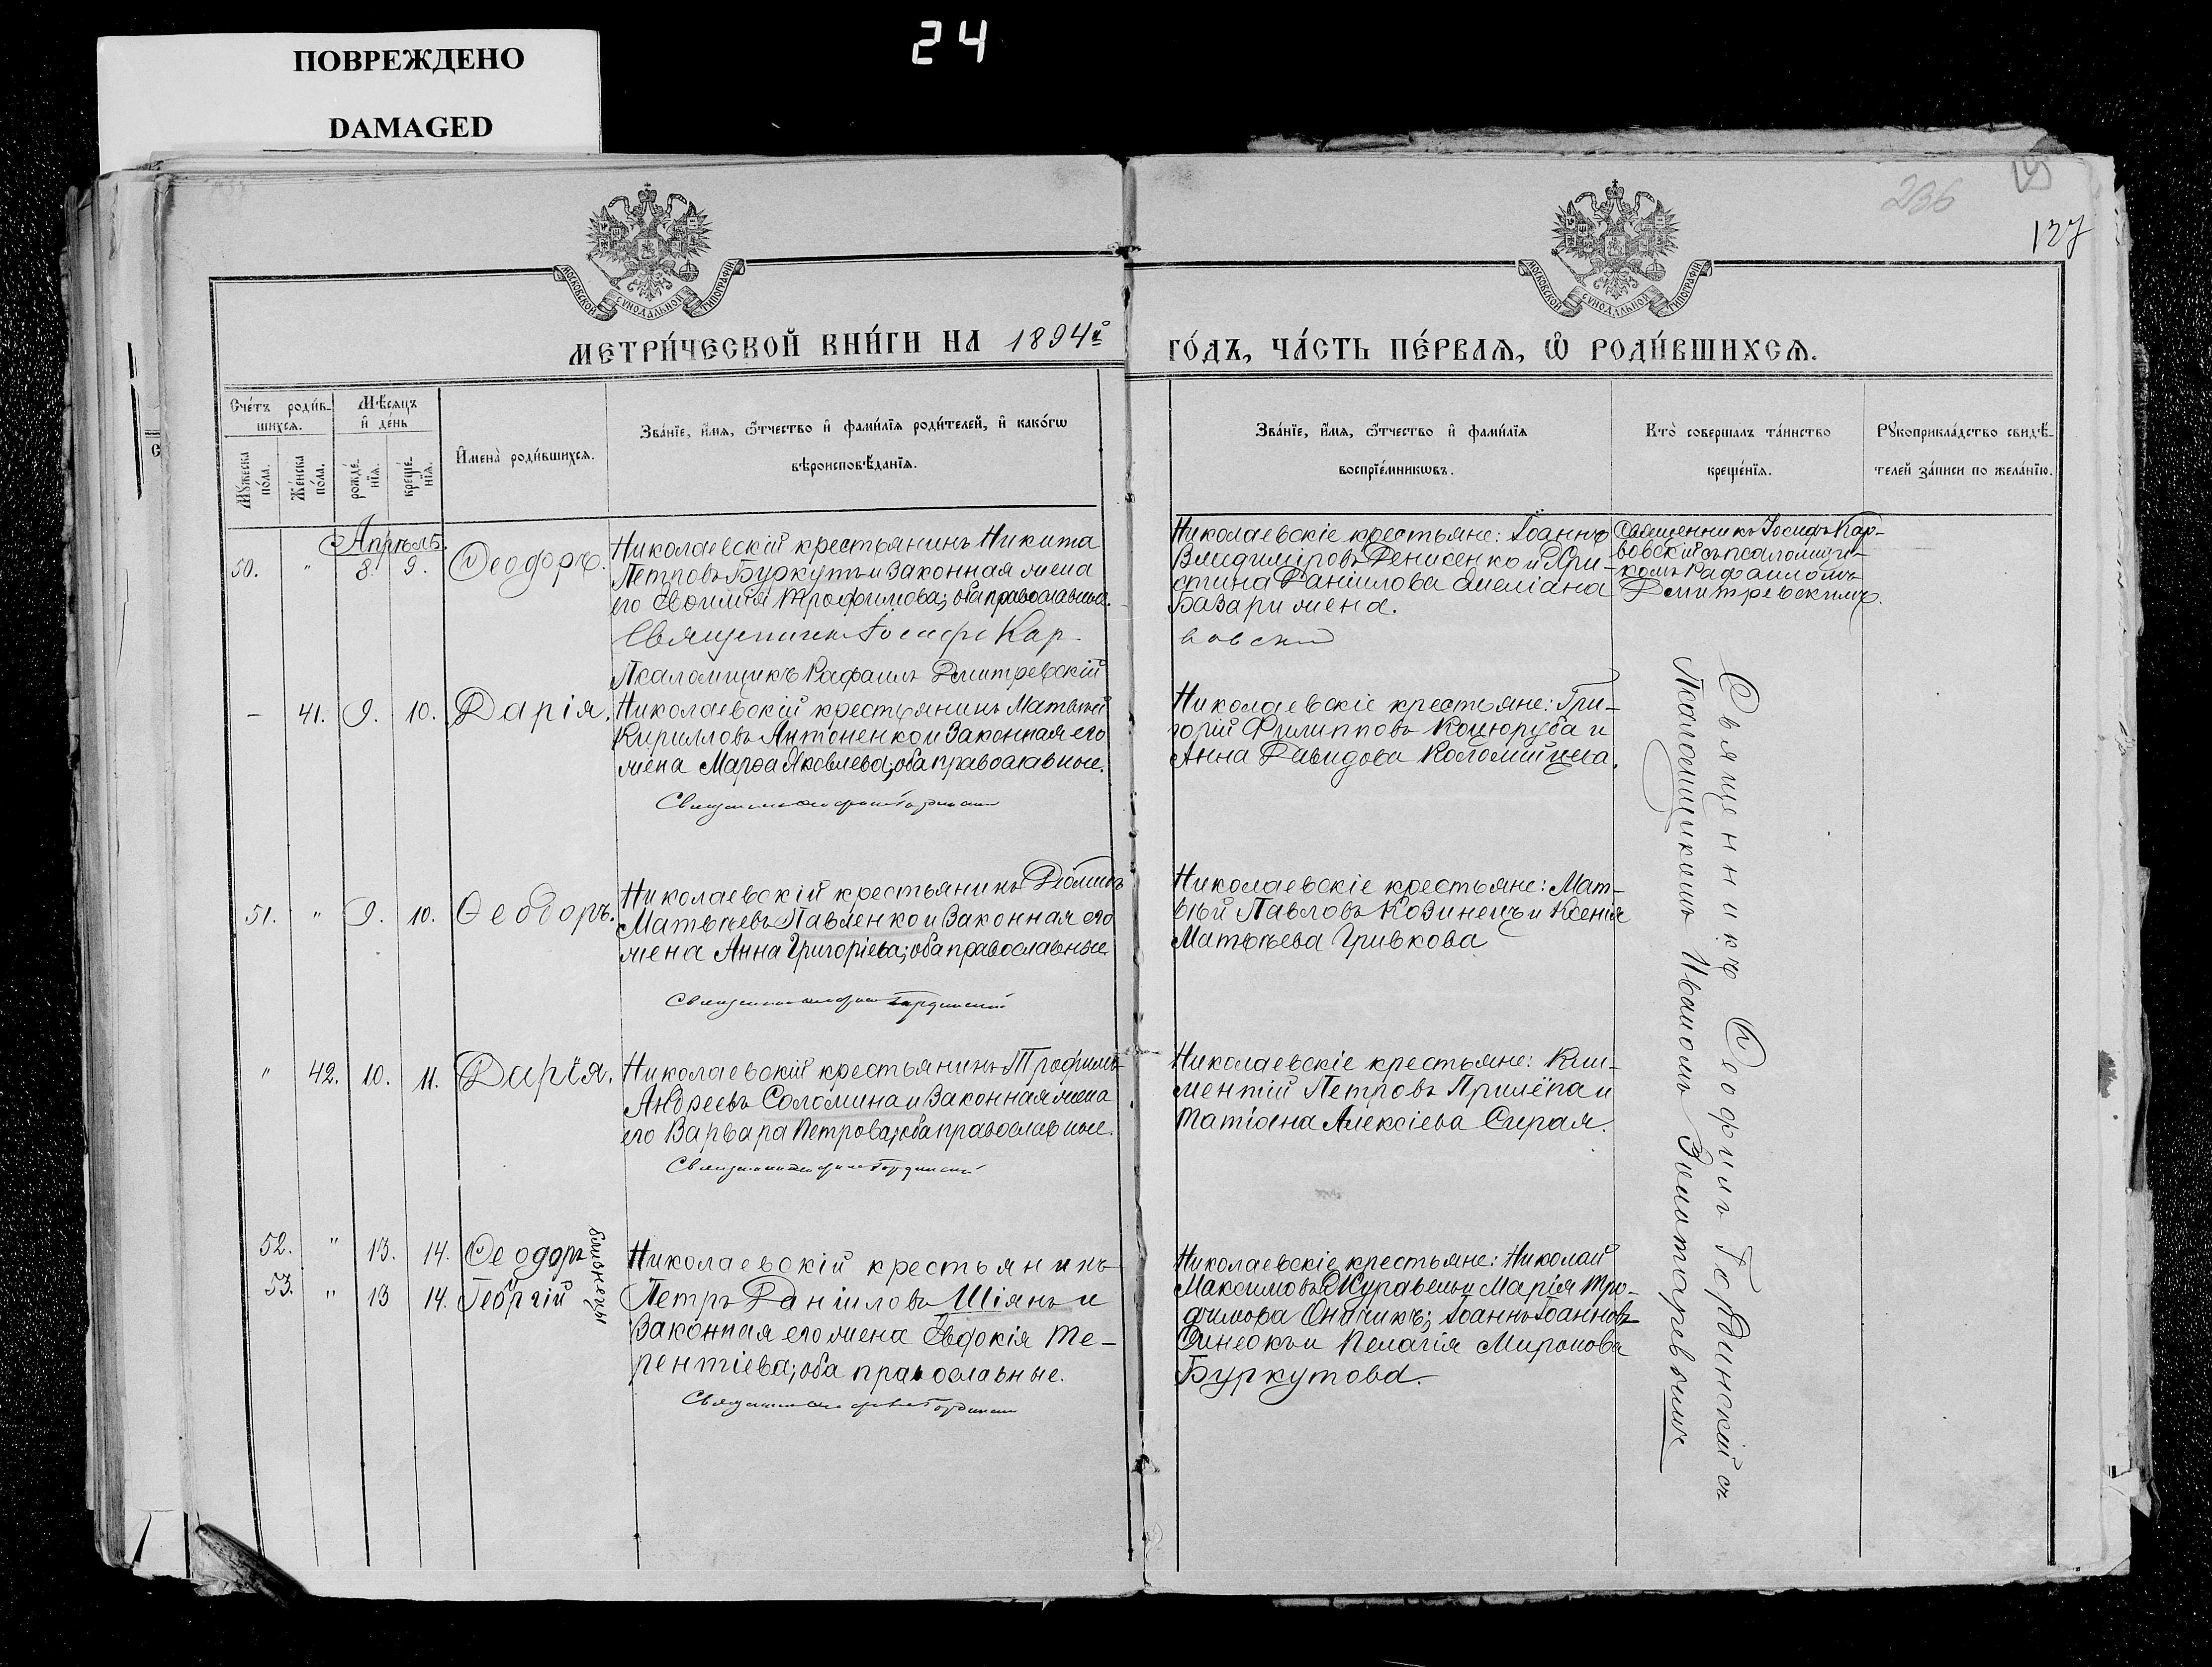 24
ПОВРЕЖДЕНО
DAMAGED
236
127
МОСКОВСКОЙ СѴНОДАЛЬНОЙ ТИПОГРАФІИ
МОСКОВСКОЙ СѴНОДАЛЬНОЙ ТИПОГРАФІИ
МЕТРИ́ЧЕСКОЙ КНИ́ГИ НА 1894й
ГО́ДЪ, ЧА́СТЬ ПЕ́РВАѦ, Ѡ РОДИ́ВШИХСѦ.
Сче́тъ роди́в-
шихсѧ.
Мѣ́сяцъ
и де́нь
Мꙋ́жеска
по́ла.
Же́нска
по́ла.
рожде́-
нїѧ.
креще́-
нїѧ.
Имена̀ роди́вшихсѧ.
Зва́нїе, и́мѧ, ѻ́тчество и фами́лїѧ роди́телей, и како́гѡ
вѣроисповѣ́данїѧ.
Зва́нїе, и́мѧ, ѻ́тчество и фами́лїѧ
воспрїе́мникѡвъ.
Кто̀ соверша́лъ та́инство
креще́нїѧ.
Рꙋкоприкла́дство свидѣ́-
телей за́писи по жела́нїю.
Апрѣль.
50. " 8. 9. Ѳеодоръ.
Николаевскій крестьянинъ Никита
Петровъ Буркутъ и законная жена
его Евфимія Трофимова; оба православные.
Священникъ Іосифъ Кар-
Псаломщикъ Рафаилъ Дмитревскій
Николаевскіе крестьяне: Іоаннъ
Владиміровъ Денисенко и Хри-
стина Даніилова Емеліана
Базари жена.
вовскій
Священникъ Іосифъ Кар-
вовскій съ псаломщи-
комъ Рафаиломъ
Дмитревскимъ.
– 41. 9. 10. Дарія.
Николаевскій крестьянинъ Матѳей
Кирилловъ Антоненко и законная его
жена Марѳа Яковлева; оба православные.
Священникъ Гординскій
Николаевскіе крестьяне: Гри-
горій Филипповъ Коцюруба и
Анна Давидова Коломийцева.
51. " 9. 10. Ѳеодоръ.
Николаевскій крестьянинъ
Матвѣевъ Павленко и законная его
жена Анна Григоріева; оба православные
Священникъ Гординскій
Николаевскіе крестьяне: Мат-
вѣй Павловъ Козинецъ и Ксенія
Матвѣева Гривкова
" 42. 10. 11. Дарія.
Николаевскій крестьянинъ Трофимъ
Андреевъ Соломина и законная жена
его Варвара Петрова; оба православные.
Священникъ Гординскій
Николаевскіе крестьяне: Кли-
ментій Петровъ Прилёпа и
Татіана Алексіева Сирая.
52. " 13. 14. Ѳеодоръ
53. " 13 14. Георгій
близнецы
Николаевскій крестьянинъ
Петръ Даніиловъ Шіянъ и
законная его жена Евдокія Те-
рентіева; оба православные.
Священникъ Гординскій
Николаевскіе крестьяне: Николай
Максимовъ Журавель и Марія Тро-
фимова Оничикъ; Іоаннъ Іоанновъ
Синеокъ и Пелагія Миронова
Буркутова.
Священникъ Ѳеофилъ Гординскій съ
Псаломщикомъ Иваномъ Золотаревымъ